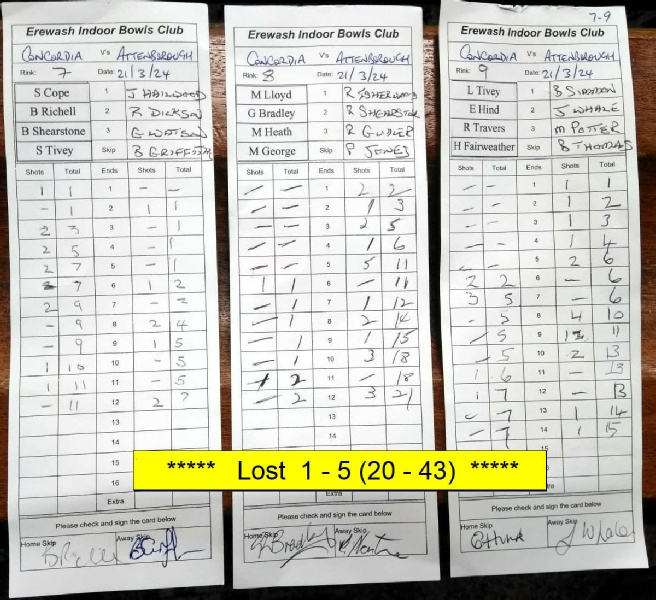 7-9
Erewash Indoor Bowls Club
CONCORDIA Vs ATTENBOROUGH
Rink: 7 Date: 21/3/24
S Cope 1 J HAILWOOD
B Richell 2 R DICKSON
B Shearstone 3 G WATSON
S Tivey Skip B GRIFFITH
Shots Total Ends Shots Total
1 1 1 - -
- 1 2 1 1
2 3 3 - 1
2 5 4 - 1
2 7 5 - 1
- 7 6 1 2
2 9 7 - 2
- 9 8 2 4
- 9 9 1 5
1 10 10 - 5
1 11 11 - 5
- 11 12 2 7
13
14
15
16
Extra
Please check and sign the card below
Home Skip Away Skip
Erewash Indoor Bowls Club
CONCORDIA Vs ATTENBOROUGH
Rink: 8 Date: 21/3/24
M Lloyd 1 R
G Bradley 2 R
M Heath 3 R
M George Skip P JONES
Shots Total Ends Shots Total
- - 1 2 2
- - 2 1 3
- - 3 2 5
- - 4 1 6
- - 5 5 11
1 1 6 - 11
- 1 7 1 12
- 1 8 2 14
- 1 9 1 15
- 1 10 3 18
1 2 11 - 18
- 2 12 3 21
13
14
Extra
Please check and sign the card below
Home Skip Away Skip
Erewash Indoor Bowls Club
CONCORDIA Vs ATTENBOROUGH
Rink: 9 Date: 21/3/24
L Tivey 1 B
E Hind 2 J WHALE
R Travers 3 M POTTER
H Fairweather Skip B THOMAS
Shots Total Ends Shots Total
- - 1 1 1
- - 2 1 2
- - 3 1 3
- - 4 1 4
- - 5 2 6
2 2 6 - 6
3 5 7 - 6
- 5 8 4 10
- 5 9 1 11
- 5 10 2 13
1 6 11 - 13
1 7 12 - 13
- 7 13 1 14
- 7 14 1 15
Extra
Please check and sign the card below
Home Skip Away Skip
***** Lost 1 - 5 (20 - 43) *****